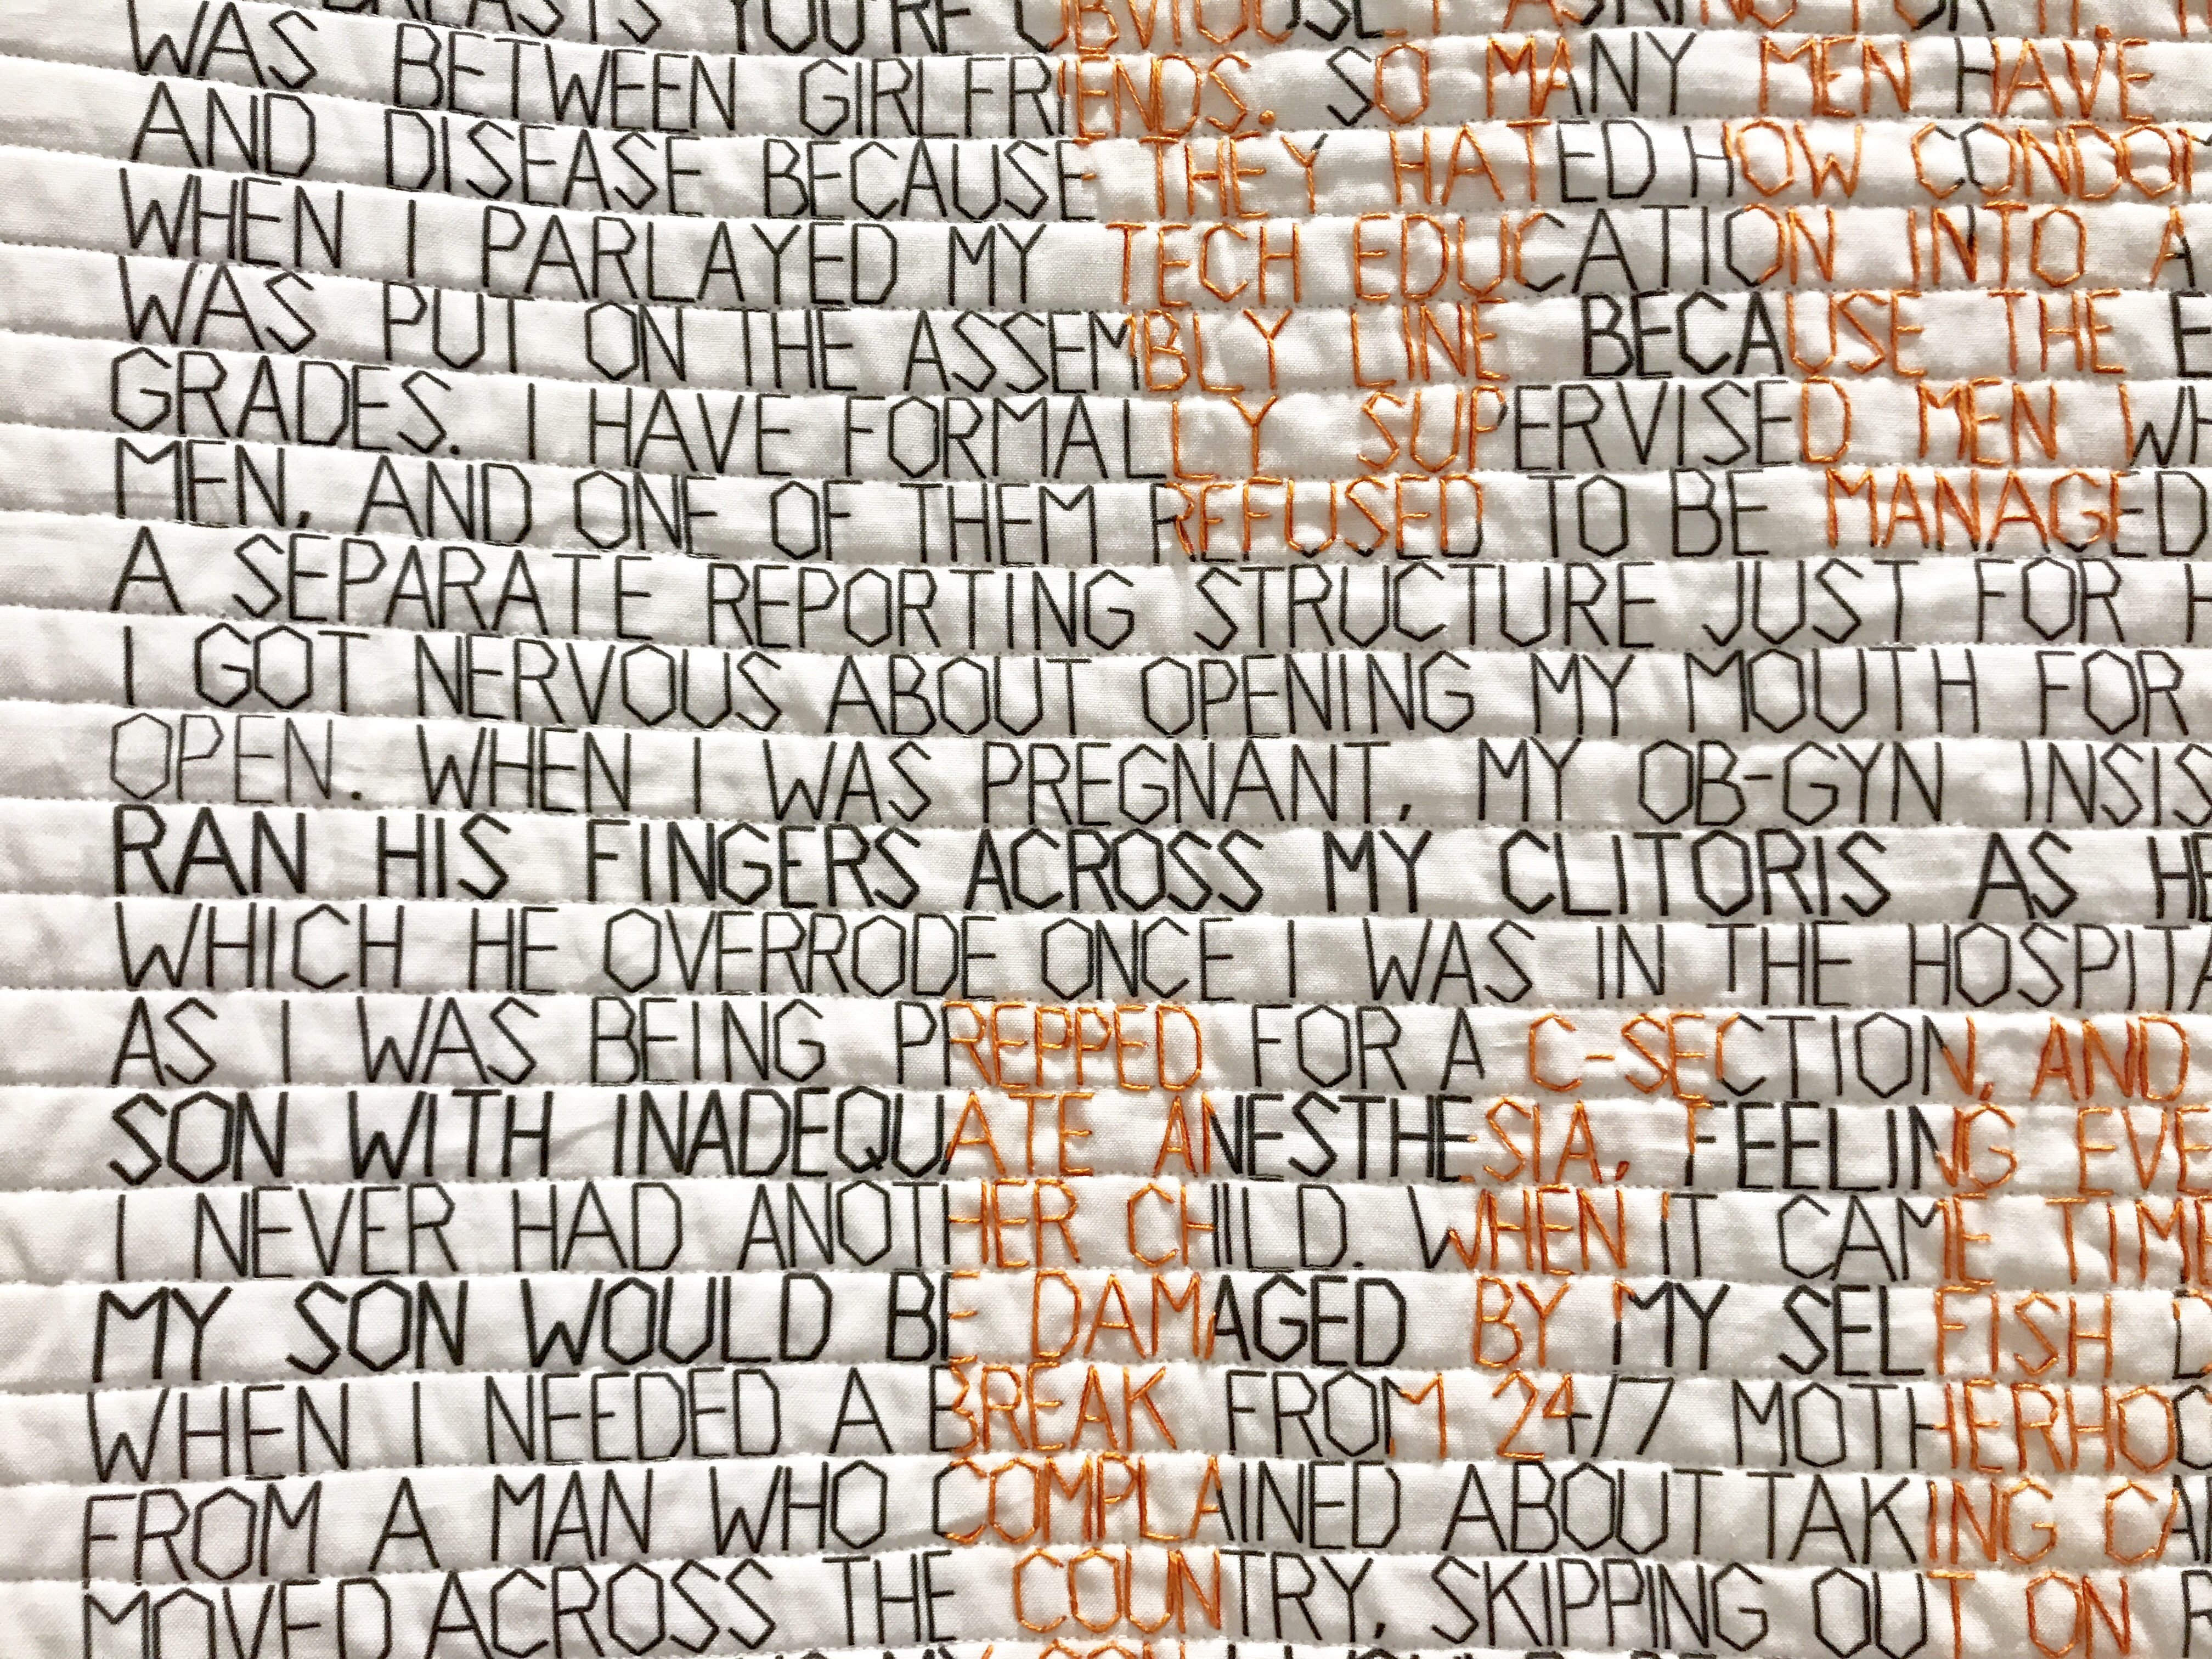 YOU'RE OBVIOUSLY ASKING FOR
WAS BETWEEN GIRLFRIENDS. SO MANY MEN HAVE
AND DISEASE BECAUSE THEY HATED HOW
WHEN I PARLAYED MY TECH EDUCATION INTO A
WAS PUT ON THE ASSEMBLY LINE BECAUSE THE
GRADES. I HAVE FORMALLY SUPERVISED MEN
MEN, AND ONE OF THEM REFUSED TO BE MANAGED
A SEPARATE REPORTING STRUCTURE JUST FOR
I GOT NERVOUS ABOUT OPENING MY MOUTH FOR
OPEN. WHEN I WAS PREGNANT, MY OB-GYN
RAN HIS FINGERS ACROSS MY CLITORIS AS
WHICH HE OVERRODE ONCE I WAS IN THE
AS I WAS BEING PREPPED FOR A C-SECTION, AND
SON WITH INADEQUATE ANESTHESIA, FEELING
I NEVER HAD ANOTHER CHILD. WHEN IT CAME
MY SON WOULD BE DAMAGED BY MY SELFISH
WHEN I NEEDED A BREAK FROM 24/7
FROM A MAN WHO COMPLAINED ABOUT TAKING
MOVED ACROSS THE COUNTRY, SKIPPING OUT ON